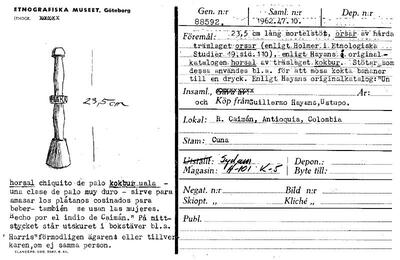 ETNOGRAFISKA MUSEET, Göteborg
23,5 cm
horsal chiquito de palo kokbur uala -
una clase de palo muy duro - sirve para
amasar los plátanos cosinados para
beber- también se usan las mujeres.
"Hecho por el indio de Caimán." På mitt-
stycket står utskuret i bokstäver bl.a.
"Harris"förmodligen ägarens eller tillver
karen,om ej samma person.
Gen. nr Saml. nr Dep. nr
88592. 1962.47.10.
Föremål: 23,5 cm lång mortelstöt, orsar av hårda
träslaget orsar (enligt Holmer i Etnologiska
Studier 49.sid.110), enligt Hayans original-
katalogen horsal av träslaget kokbur. Stötar som
dessa användes bl.a. för att mosa kokta bananer
till en dryck. Enligt Hayans originalkatalog:"Un
Insaml. År:
och Köp från Guillermo Hayans,Ustupo.
Lokal: R. Caimán, Antioquia, Colombia
Stam: Cuna
Utställ: Sydam Depon.:
Magasin: A-101 K-5 Byte till:
Negat. nr Bild nr
Skiopt. „ Kliché „
Publ.